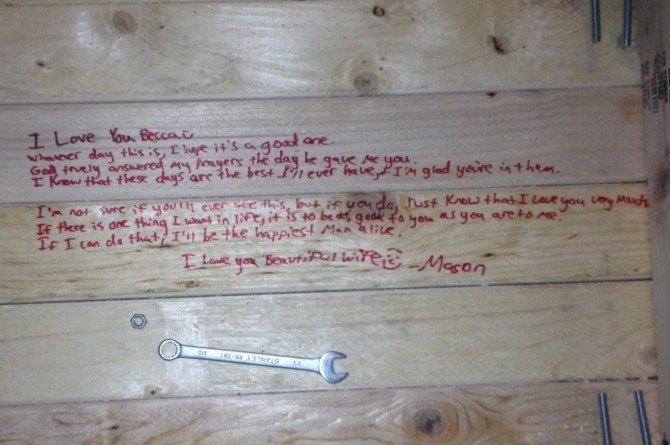 I Love You Becca :)
Whatever day this is, I hope it's a good one.
God truely answered my prayers the day he gave me you.
I know that these days are the best I'll ever have, & I'm glad you're in them.
I'm not sure if you'll ever see this, but if you do, Just Know that I Love you very Much
If there is one thing I want in life, it is to be as good to you as you are to me.
If I can do that, I'll be the happiest Man alive.
I Love you Beautiful wife :) -Mason
1/2 STANLEY 86-781 1/2